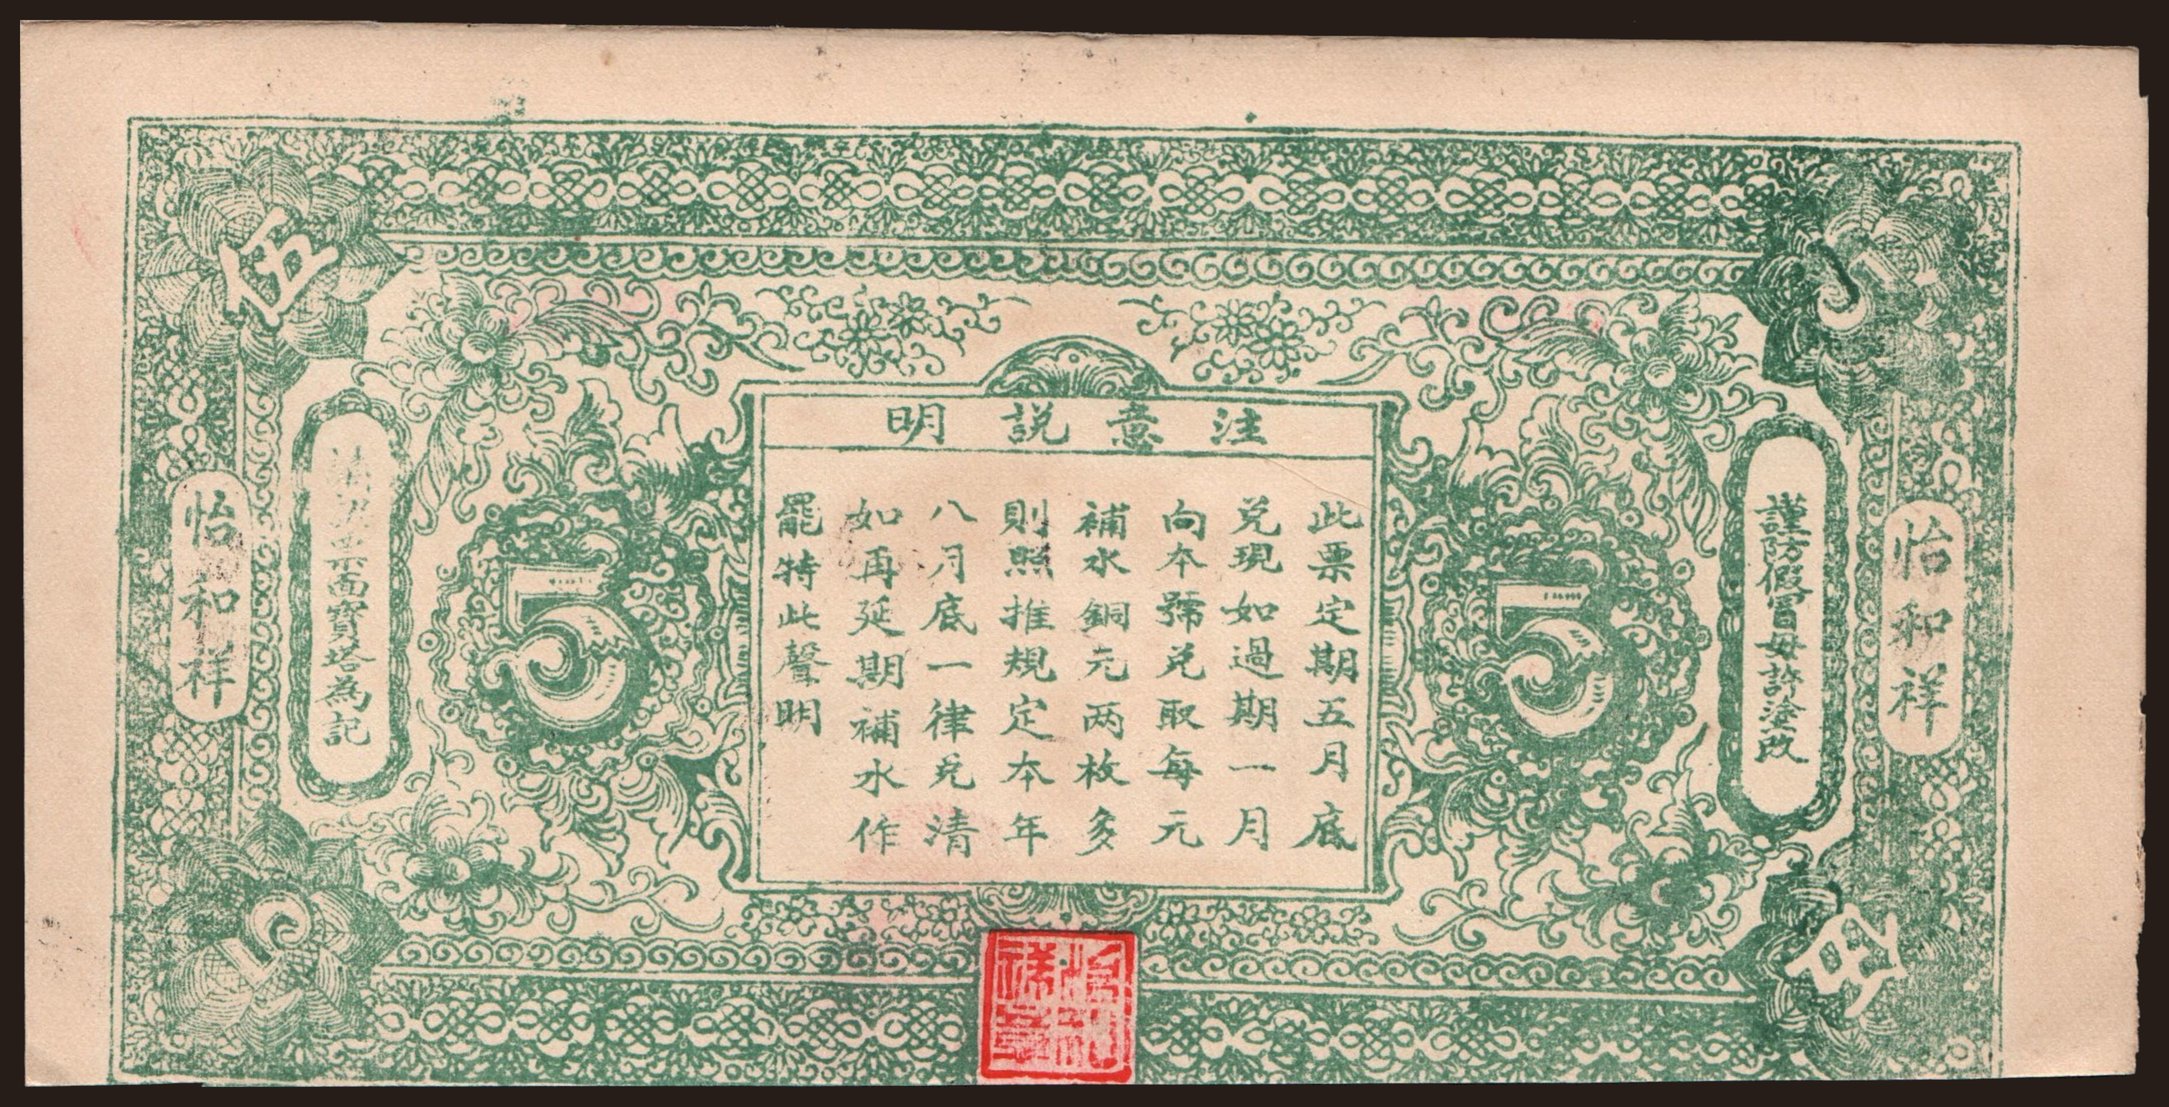 注意説明
此票定期五月底
兑現如過期一月
向本號兑取每元
補水銅元两枚多
則照推規定本年
八月底一律兑清
如再延期補水作
罷特此聲明
謹防假冒毋許塗改
票面寳塔為記
怡和祥
怡和祥
伍
5
5
5
5
伍
怡和祥章